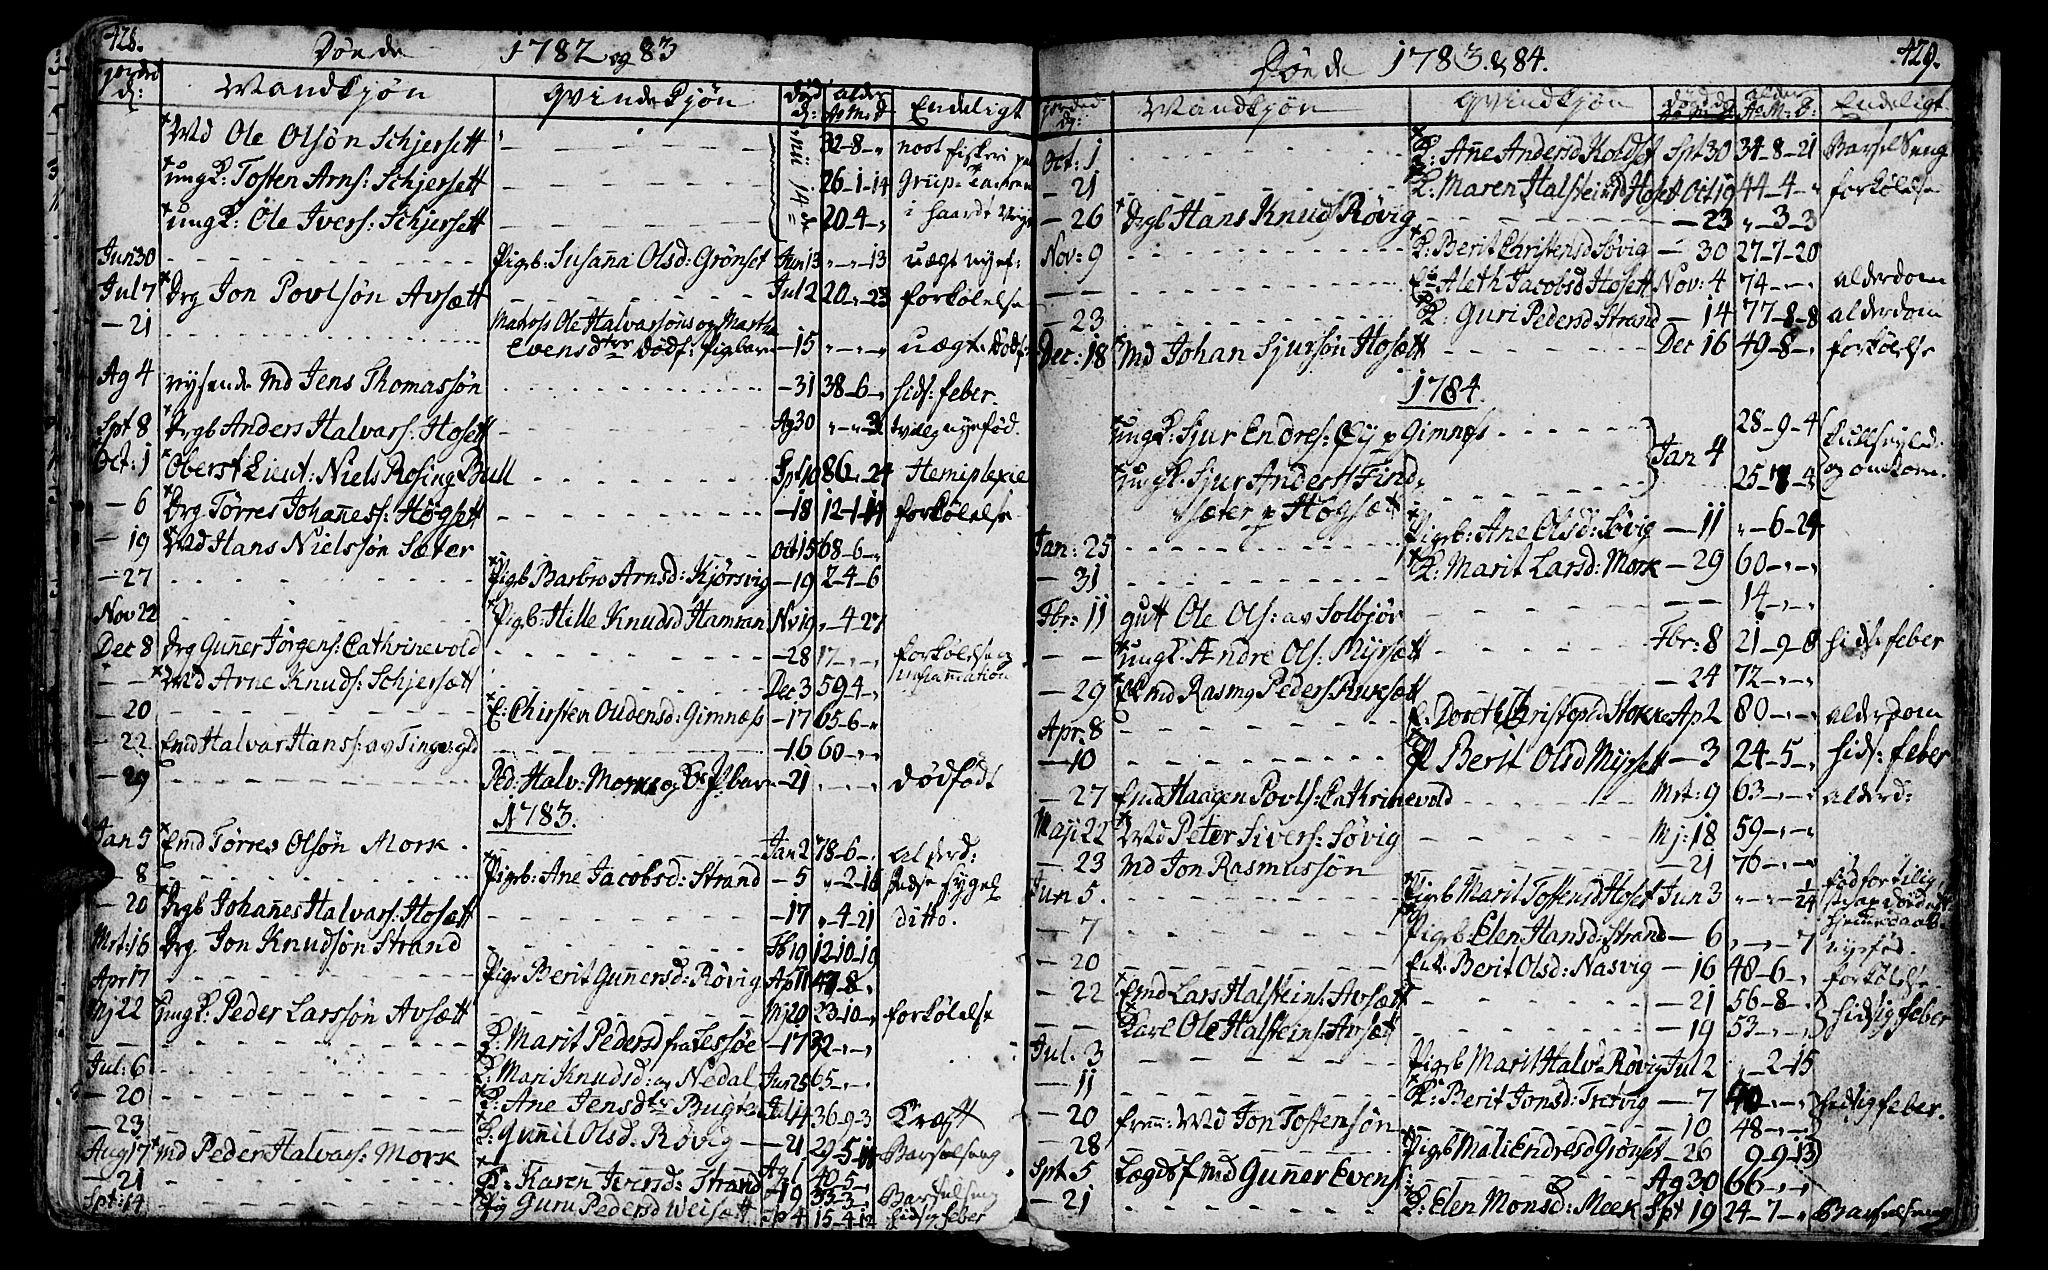 428.
Döde 1782 og 83
Mandkjön qvindekjön död alder Endeligt
Md Ole Olsön Schjersett 32-8-"
ungk: Tosten Arns: Schjersett 26-1-14
ungk: Ole Ivers: Schjersett 20-4-" i haardt
Jun 30 Pigb: Susaña Olsd: Grönset Jun 13 "-"-13 uægt nyef:
Jul 7 Drg Jon Povlsön Avsætt Jul 2 20-"-23 forkölelse
- 21 Matros Ole Halvarsöns og Martha
Evensdtrs Dödf: Pigbarn -15 "-"-" uægte Dödf
Ag 4 rejsende Md Jens Thomassön -31 38-6-" hids: feber.
Spt 8 Drgb Anders Halvars: Hosett Ag 30 nyefød.
Oct: 1 Oberst Lieut: Niels Rosing Bull Spt 10 86-"-24 Hemiplexie
- 6 Drg Törres Johañes: Högsett -18 12-1-14 forkölelse
- 19 Md Hans Nielssön Sæter Oct 15 68-6-"
- 27 Pigb Barbro Arnsd: Kjörsvig -19 2-4-6
Nov 22 Pigb: Hille Knudsd Hamran Nv 19 "-4-27
Dec 8 Drg Guñer Jörgens: Cathrinevold -28 17-"-" forkölelse og
- - Md Arne Knuds: Schjersætt Dec 3 59-4-" Inflañation
- 20 E: Chirsten Oudensd: Gimnæs -17 65-6-"
- 22 Emd Halvar Hans: av Tingvogld -16 60-"-"
- 29 Ped: Halv: Mork og -21 "-"-" dödfödt
1783.
Jan 5 Emd Törres Olsön Mork Jan 2 78-6-" alderd:
- 8 Pigb: Ane Jacobsd: Strand -5 "-2-16
- 20 Drgb Johañes Halvars: Hosætt -17 "-4-21 ditto.
Mrt: 16 Drg Jon Knudsön Strand Fb 19 12-10-19
Apr 17 Pige Berit Guñersd: Rövig Ap 11 47-8-"
Mj 22 ungk: Peder Larssön Avsætt Mj 20 23-10-" forkölelse
- - K: Marit Pedersd fra Lessöe -17 32-"-"
Jul: 6 K: Mari Knudsd: av Nedal Jun 25 65-"-"
- 20 K: Ane Jensdtr Bugten Jul 14 36-9-3 Kræft
- 23 K: Guñil Olsd: Rövig -21 29-5-11 Barselseng
Aug 17 Md Peder Halvars: Mork Ag 1 40-5-"
- 21 K: Karen Iversd: Strand -19 33-3-" Barselseng
Spt: 14 Pig Guru Pedersd Weisætt Sp 4 15-4-12 hidsig feber
429.
Döde 1783. & 84.
Mandkjön qvindkjön alder Endeligt
Oct: 1 K: Añe Andersd Koldset Spt 30 34-8-21 Barselseng
- 21 K: Maren Halsteind Hoset Oct 19 44-4-" forkölelse
- 26 Drgb Hans Knuds Rövig -23 "-3-3
Nov: 9 K: Berit Christensd Sövig - 30 27-7-20
- - Aleth Jacobsd Hosett Nov: 4 74-"-" alderdom
- 23 K: Guri Pedersd Strand -14 77-8-8 alderdom
Dec: 18 Md Johan Sjursön Hosætt Dec 16 49-8-" forkölelse
1784.
ungk: Sjur Endres: p Gimnes 28-9-4
ungk: Sjur Anders: Find Jan 4 25-7-3 og omkom.
sæter p Högsæt
Jan: 25 Pigb: Ane Olsd: Sövig -11 "-6-24
- 31 K: Marit Larsd: Mork - 29 60-"-"
Fbr: 11 gutt Ole Ols: av Solbjör - - 14-"-"
- - ungk: Andre Ols: Myrsætt Fbr: 8 21-9-6 hids: feber
- 29 Emd Rasmg Peders: -24 72-"-"
Apr: 8 E: Doroth Christophd Stokke Ap 2 80-"-" alderdom
- 10 P Berit Olsd Myrsett - 3 24-5-" hids: feber
- 27 Emd Haagen Povls: Cathrinevold Mrt: 9 63-"-" alderd:
Maji 22 Md Peter Sivers: Sövig Mj: 18 59-"-"
- 23 Md Jon Rasmussön -21 76-"-"
Jun 5. Pigb Marit Tostensd Hoset Jun 3 "-"-1/24 fød for tilig
- 7 Pigb: Elen Hansd: Strand - 6 "-"-7 nyefød.
- 20 Enk: Berit Olsd: Nasvig -16 48-6-" forkölelse.
- 22 Emd Lars Halsteins: Avsætt -21 56-8-" hidsig feber
- - Karl Ole Halsteins: Avsætt -19 53-"-"
Jul. 3 Pigb Marit Halv: Rövig Jul 2 "-2-15
- 11 K: Berit Jonsd: Trötvig - 7 40-"-" hedig feber.
- 20 Md Jon Tostensön - 10 48-"-"
- 28 Pigb Mali Endresd Grönset -26 9-9-13
Spt. 5 Lægdsf Md Guñer Evens: Ag 30 66-"-"
- 21 K: Elen Monsd: Meek Spt 19 24-7-" Barselseng